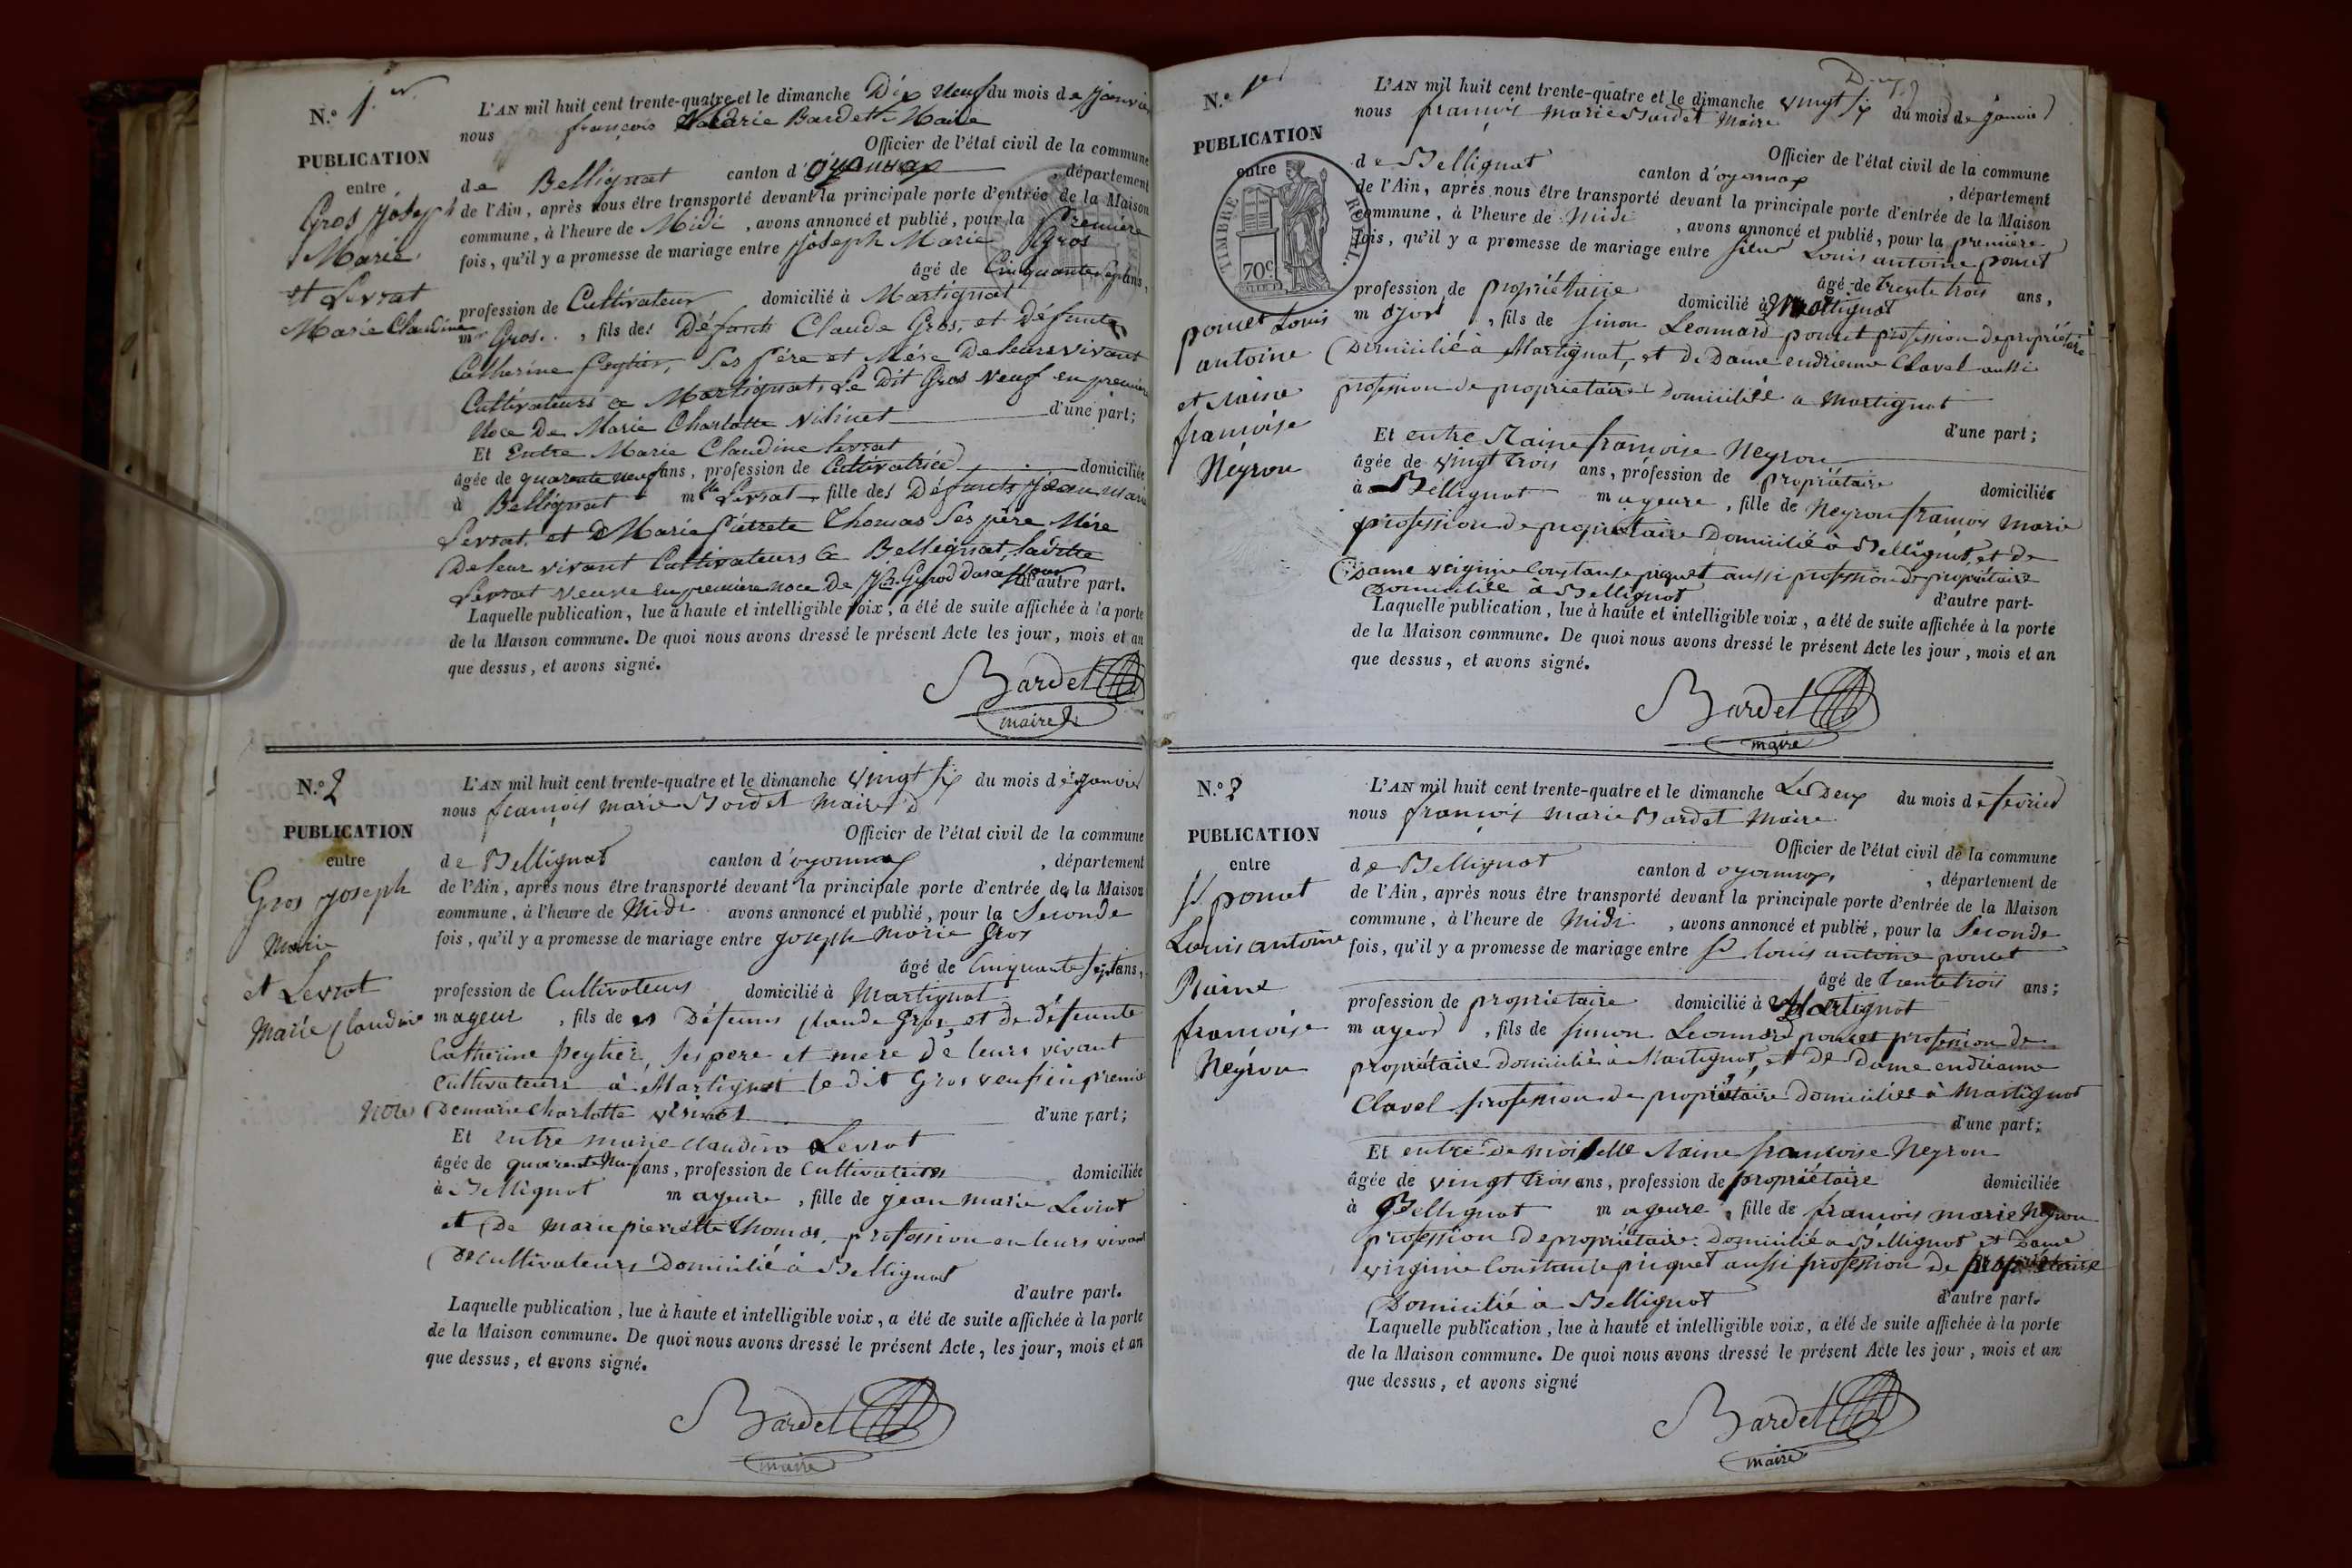 N.º 1er
PUBLICATION
entre
Gros Joseph
Marie
et Levrat
Marie Claudine
L'AN mil huit cent trente-quatre et le dimanche Dix neuf du mois de Janvier
nous françois Marie Bardet Maire
Officier de l'état civil de la commune
de Bellignat canton d'oyonnax, département
de l'Ain, après nous être transporté devant la principale porte d'entrée de la Maison
commune, à l'heure de Midi, avons annoncé et publié, pour la Première
fois, qu'il y a promesse de mariage entre Joseph Marie Gros
âgé de Cinquante Sept ans,
profession de Cultivateur domicilié à Martignat
m Gros, fils des Défunts Claude Gros, et Défunte
Catherine Peytier, Ses Père et Mère De leurs vivant
Cultivateurs a Martignat, Le Dit Gros Veuf en première
Noce De Marie Charlotte d'une part;
Et Entre Marie Claudine Levrat
âgée de quarante neuf ans, profession de Cultivatrice domiciliée
à Bellignat mlle Levrat fille des Défunts Jean Marie
Levrat et D Marie Piérrete Thomas Ses père Mére
De leur vivant Cultivateurs a Bellignat, laditte
Levrat veuve en première noce De d'autre part.
Laquelle publication, lue à haute et intelligible voix, a été de suite affichée à la porte
de la Maison commune. De quoi nous avons dressé le présent Acte les jour, mois et an
que dessus, et avons signé.
Bardet
maire
N.º 2
PUBLICATION
entre
Gros Joseph
Marie
et Levrat
Marie Claudine
L'AN mil huit cent trente-quatre et le dimanche vingt six du mois de Janvier
nous françois marie Bardet maire
Officier de l'état civil de la commune
de Bellignat canton d'oyonnax, département
de l'Ain, après nous être transporté devant la principale porte d'entrée de la Maison
commune, à l'heure de Midi avons annoncé et publié, pour la Seconde
fois, qu'il y a promesse de mariage entre Joseph Marie Gros
âgé de Cinquante Sept ans,
profession de Cultivateurs domicilié à Martignat
mageur, fils de es Défunts Claude Gros, et de défeunte
Catherine Peytier, Ses pere et mere de leurs vivant
Cultivateurs à Martignat le dit Gros veuf en premie
Noce De marie Charlotte d'une part;
Et entre marie Claudine Levrat
âgée de quarante Neuf ans, profession de Cultivatrice domiciliée
à Bellignat mageure, fille de Jean marie Levrat
et De marie pierrette Thomas, profession en leurs vivant
De cultivateurs Domicilié à Bellignat
d'autre part.
Laquelle publication, lue à haute et intelligible voix, a été de suite affichée à la porte
de la Maison commune. De quoi nous avons dressé le présent Acte, les jour, mois et an
que dessus, et avons signé.
Bardet
maire
N.º 1er
PUBLICATION
entre
TIMBRE ROYAL.
70c
poncet Louis
antoine
et Raine
françoise
Néyron
L'AN mil huit cent trente-quatre et le dimanche vingt six du mois de Janvier
nous françois marie Bardet Maire
Officier de l'état civil de la commune
de Bellignat canton d'oyonnax, département
de l'Ain, après nous être transporté devant la principale porte d'entrée de la Maison
commune, à l'heure de Midi, avons annoncé et publié, pour la première
fois, qu'il y a promesse de mariage entre sieur Louis antoine poncet
âgé de Trente trois ans,
profession de propriétaire domicilié à Martignat
majeur, fils de simon Leonnard poncet profession de propriétaire
Domicilié a Martignat, et de Dame endrienne Clavel aussi
profession de proprietaire Domiciliéé a Martignat
d'une part;
Et entre Raine françoise Neyron
âgée de vingt trois ans, profession de propriétaire domiciliée
à Bellignat mageure, fille de Neyron françois marie
profession de propriétaire Domicilié à Bellignat, et de
Dame virginie Constanse piquet aussi profession de propriétaire
Domiciliéé à Bellignat
d'autre part-
Laquelle publication, lue à haute et intelligible voix, a été de suite affichée à la porte
de la Maison commune. De quoi nous avons dressé le présent Acte les jour, mois et an
que dessus, et avons signé.
Bardet
maire
N.º 2
PUBLICATION
entre
Sr poncet
Louis antoine
Raine
francoise
Néyron
L'AN mil huit cent trente-quatre et le dimanche Le Deux du mois de fevrier
nous françois marie Bardet Maire
Officier de l'état civil de la commune
de Bellignat canton d oyonnax, département de
de l'Ain, après nous être transporté devant la principale porte d'entrée de la Maison
commune, à l'heure de Midi, avons annoncé et publié, pour la Seconde
fois, qu'il y a promesse de mariage entre Sr louis antoine poncet
âgé de Trente trois ans;
profession de propriétaire domicilié à Martignat
mageor, fils de simon Leonnard poncet profession de
propriétaire Domicilié à Martignat, et de Dame endrienne
Clavel profession de propriétaire domiciliéé à Martignat
d'une part;
Et entre De moiselle Raine francoise Neyron
âgée de vingt trois ans, profession de propriétaire domiciliée
à Bellignat mageure, fille de françois marie Neyron
profession de propriétaire Domicilié a Bellignat et Dame
virginie Constanse piquet aussi profession de propriétaire
Domicilié à Bellignat d'autre part.
Laquelle publication, lue à haute et intelligible voix, a été de suite affichée à la porte
de la Maison commune. De quoi nous avons dressé le présent Acte les jour, mois et an
que dessus, et avons signé
Bardet
maire